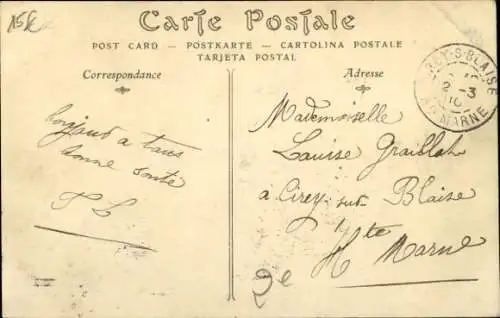 15€
Carte Postale
POST CARD — POSTKARTE — CARTOLINA POSTALE
TARJETA POSTAL
Correspondance
Adresse
CIREY-S-BLAISE
2-3
10
HTE MARNE
bonjour a tous
bonne santé
Mademoiselle
Louise
à Cirey sur Blaise
Hte Marne
2e